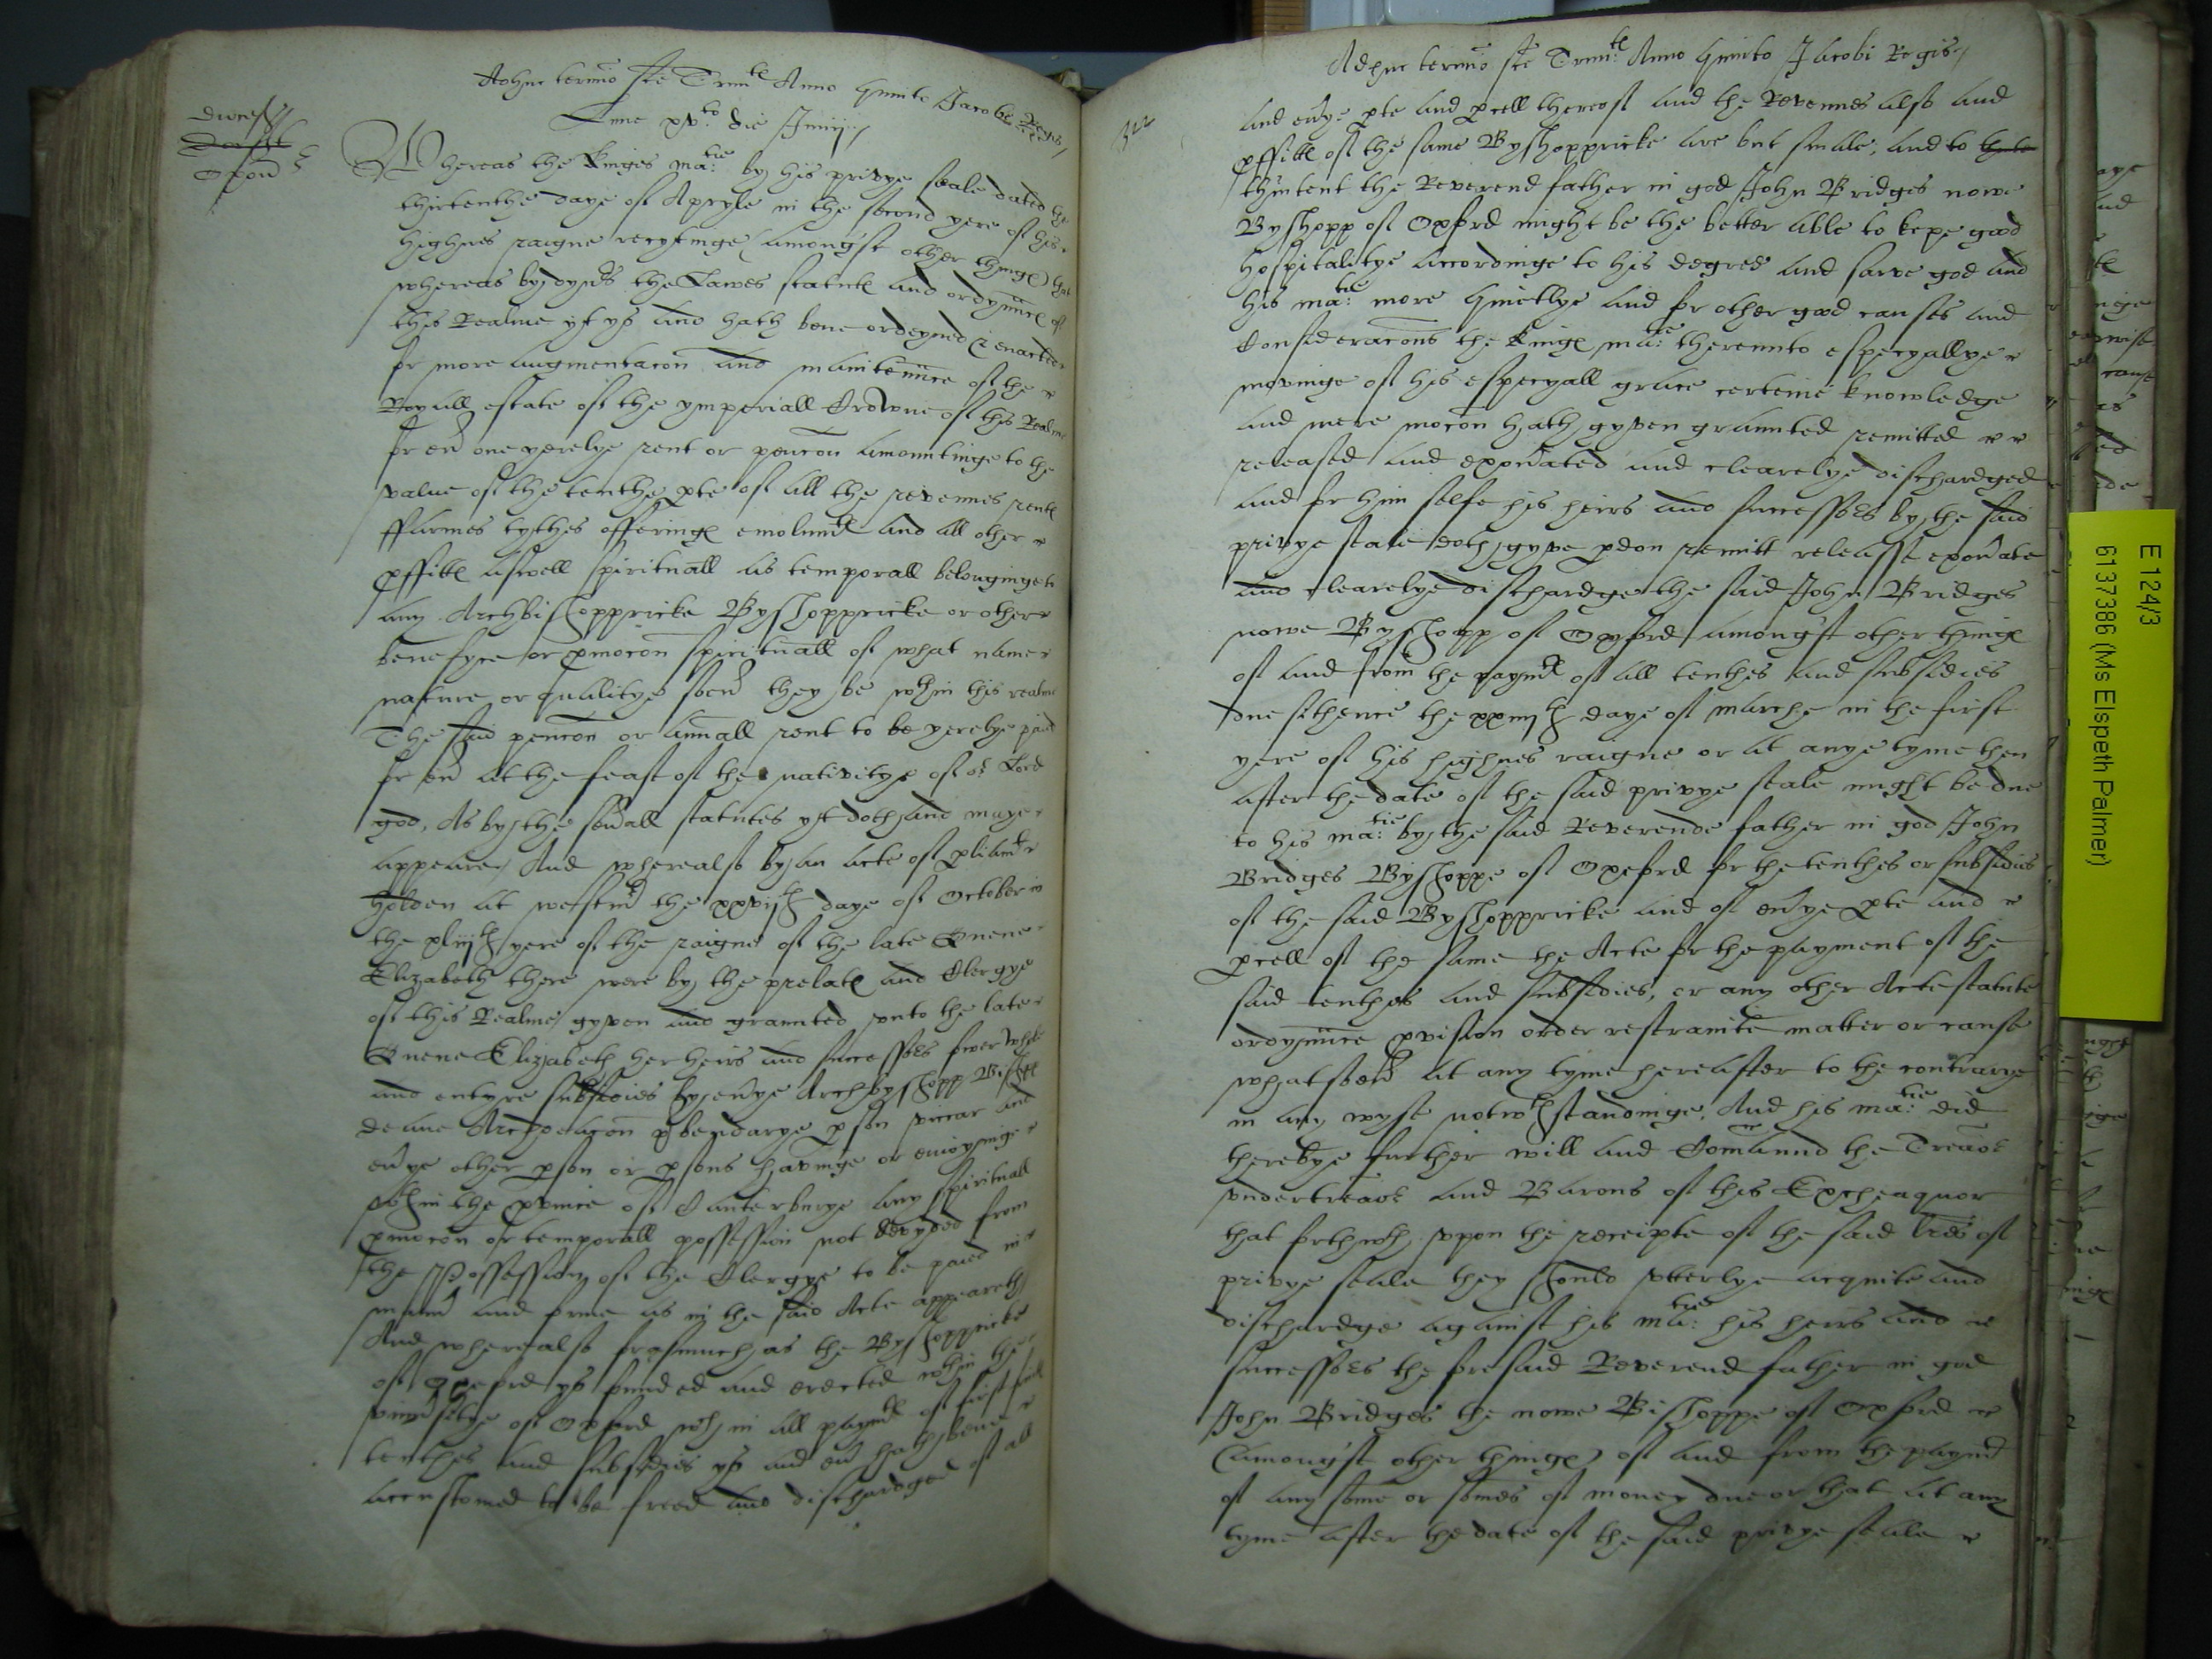 Adhuc termio sce Trinitˢ Anno Quinto Jacobi Regis
Lune xvᵗᵒ die Junij
diuers
Oxon
Whereas the Kinges maᵗⁱᵉ: by his privye seale dated the
thirtenthe daye of Apryle in the second yere of his
highnes raigne recytinge (amongst other thinges) that
whereas by dyuᵉʳˢ the Lawes statutes and ordynnces of
this Realme yt ys and hath bene ordeyned & enacted
for more augmentacon and maintennce of the
Royall estate of the ymperiall Crowne of this Realme
for eu one yerelye rent or pencon amountinge to the
value of the tenthe pte of all the revenues rentes
ffarmes tythes offeringes emolumtes and all other
pffittes aswell spirituall as temporall belonginge to
any Archbishoppricke Byshoppricke or other
benefyce or pmocon spirituall of what name
nature or qualitye soeu they be wᵗʰin this realme
The said pencon or annuall rent to be yerelye paid
for eu at the feast of the nativitye of oʳ Lord
god, As by the seuall statutes yt doth and maye
appeare, And where also by an acte of pliamt
holden at westmʳ the xxvijᵗʰ daye of October in
the xliijᵗʰ yere of the raigne of the late Quene
Elizabeth there were by the prelates and Clergye
of this Realme gyven and graunted vnto the late
Quene Elizabeth her heirs and successoʳs fower whole
and entyre subsidies by euye Archbyshopp Bishopp
deane Archdeacon pbendarye pson viccar and
euye other pson or psons havinge or enioyinge
wᵗʰin the pvince of Canterburye any spirituall
pmocon or temporall possession not devyded from
the Possession of the Clergye to be paied in
mann and forme as in the said Acte appeareth
And where also forasmuch as the Byshoppricke
of Oxeford ys founded and erected wᵗʰin the
vniuʳsitye of Oxford wᵗʰin all paymtes of first fruites
tenthes and subsidies ys and eu hath bene
accustomed to be freed and dischardged of all
322
Adhuc termio sce Trinitˢ Anno Quinto Jacobi Regis
and euye pte and pcell thereof and the Revenues also and
pffittes of the same Byshoppricke are but smale, and to
thintent the Reverend father in god John Bridges nowe
Byshopp of Oxford might be the better able to kepe good
hospitalitye accordinge to his degree and sarve god and
his maᵗⁱᵉ: more quietlye and for other good causes and
Consideracons the Kinges maᵗⁱᵉ: thereunto especyallye
movinge of his especyall grace certeine knowledge
and mere mocon hath gyven graunted remitted
released and exonʳated and clearelye dischardged
and for him selfe his heirs and successoʳs by the said
privye seale doth gyve pdon remitt releasse exonʳate
and clearelye dischardge the said John Bridges
nowe Byshopp of Oxford amongst other thinges
of and from the paymᵗ of all tenthes and subsidies
due sithence the xxiiijᵗʰ daye of Marche in the first
yere of his highnes raigne or at anye tyme then
after the date of the said privye seale might be due
to his maᵗⁱᵉ: by the said Reverende father in god John
Bridges Byshoppe of Oxeford for the tenthes or subsidies
of the said Byshoppricke and of euʳye pte and
pcell of the same the Acte for the payment of the
said tenthes and subsidies, or any other Acte statute
ordynnce pvision order restrainte matter or cause
whatsoeuʳ at any tyme hereafter to the contrarye
in any wyse notwᵗʰstandinge, And his maᵗⁱᵉ: did
therebye further will and Comaund the Treaoʳ
vndertreaoʳ and Barons of this Excheaquor
that forthwᵗʰ vpon the receipte of the said lres of
privye seale they should vtterlye acquite and
dischardge against his maᵗⁱᵉ: his heirs and
successoʳs the foresaid Reverend father in god
John Bridges the nowe Bishoppe of Oxford
(amongst other thinges) of and from the paymᵗ
of any some or somes of money due or that at any
tyme after the date of the said privye seale
E 124/3
6137386 (Ms Elspeth Palmer)